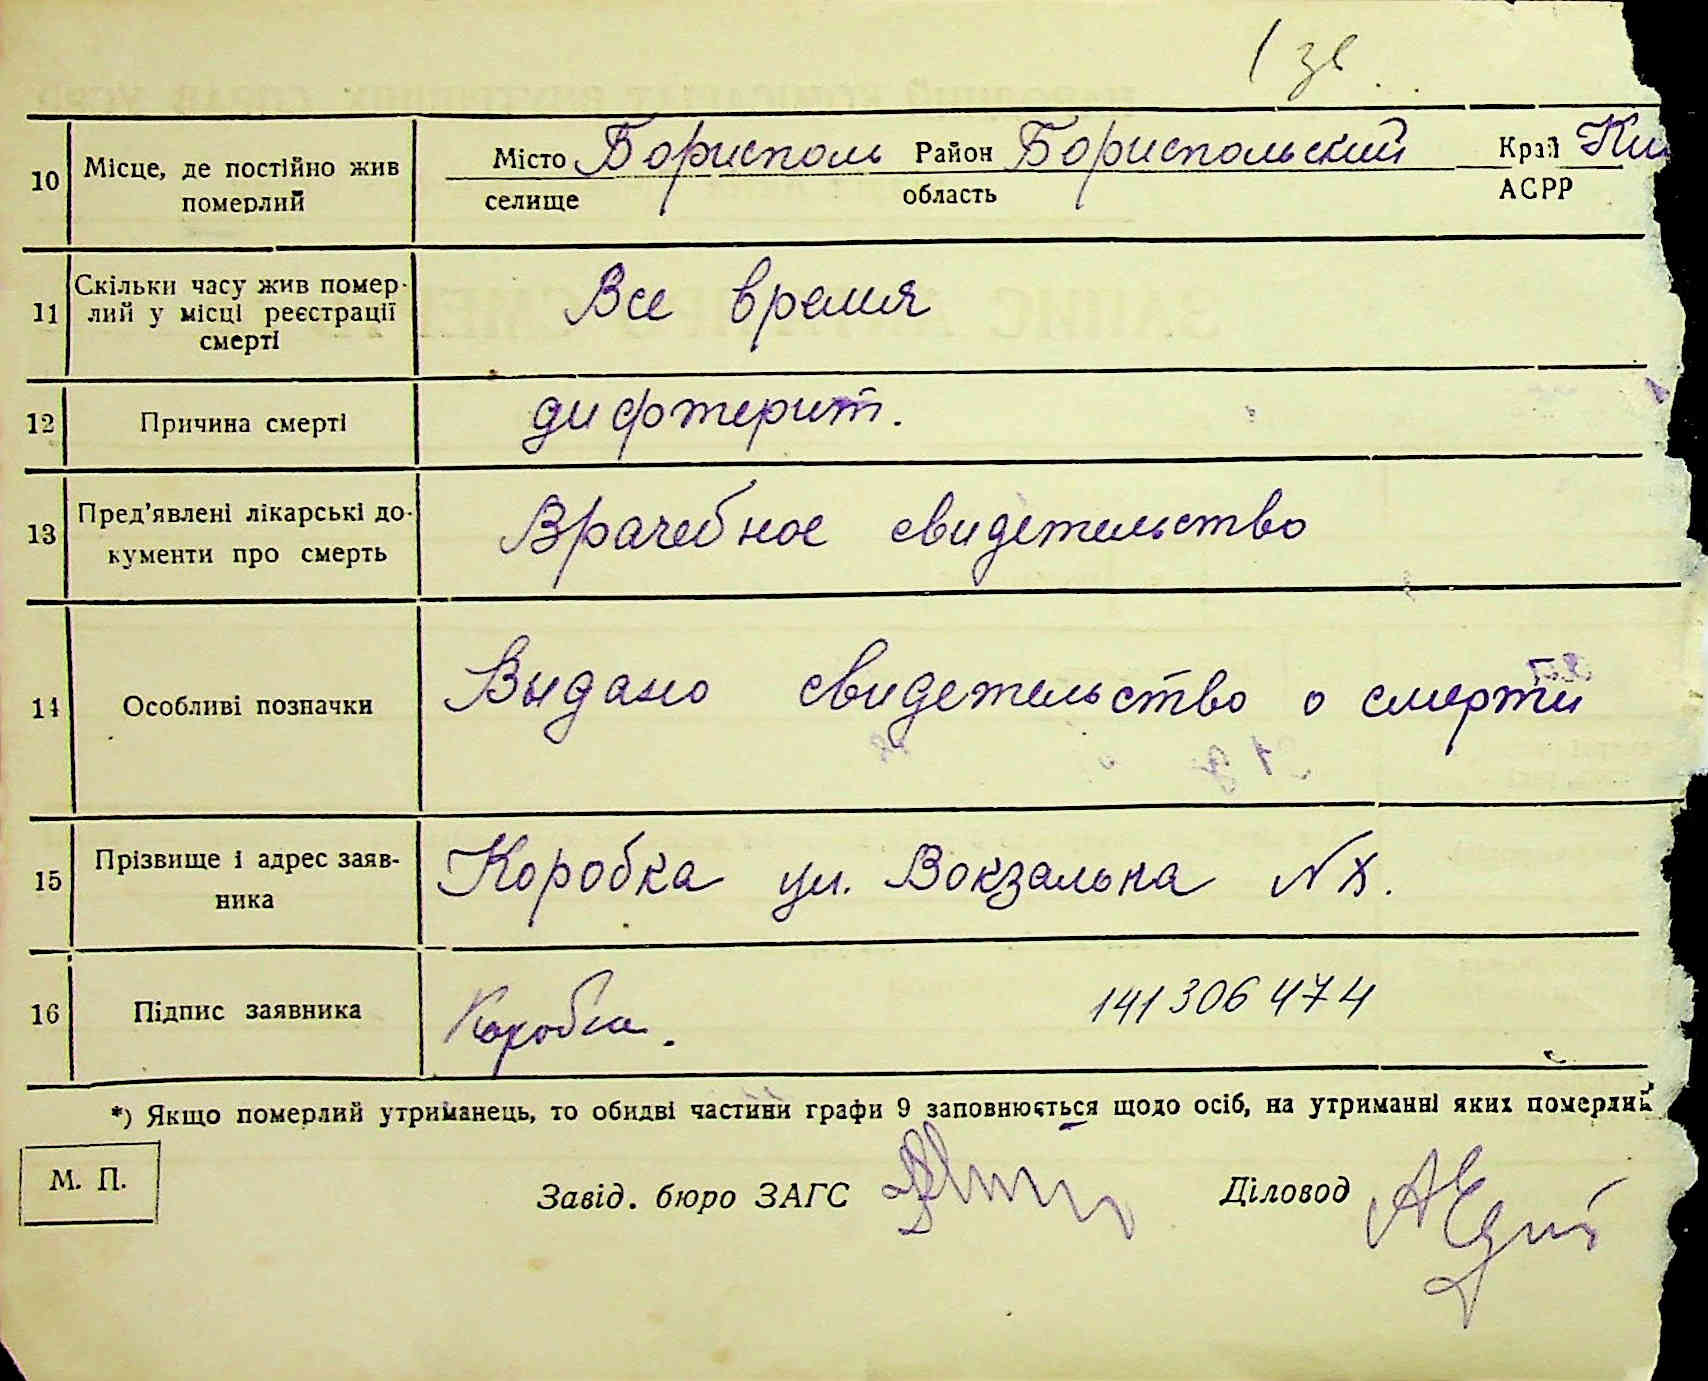 10 Місце, де постійно жив померлий Місто селище Борисполь Район область Бориспольский Край АСРР Ки
11 Скільки часу жив помер-
лий у місці реєстрації
смерті
Все время
12 Причина смерті дифтерит.
13 Пред'явлені лікарські до-
кументи про смерть
Врачебное свидетельство
14 Особливі позначки Выдано свидетельство о смерти
15 Прізвище і адрес заяв-
ника
Коробка ул. Вокзальна N
16 Підпис заявника Коробка. 141306474
*) Якщо померлий утриманець, то обидві частини графи 9 заповнюється щодо осіб, на утриманні яких померлий
М. П. Завід. бюро ЗАГС Діловод